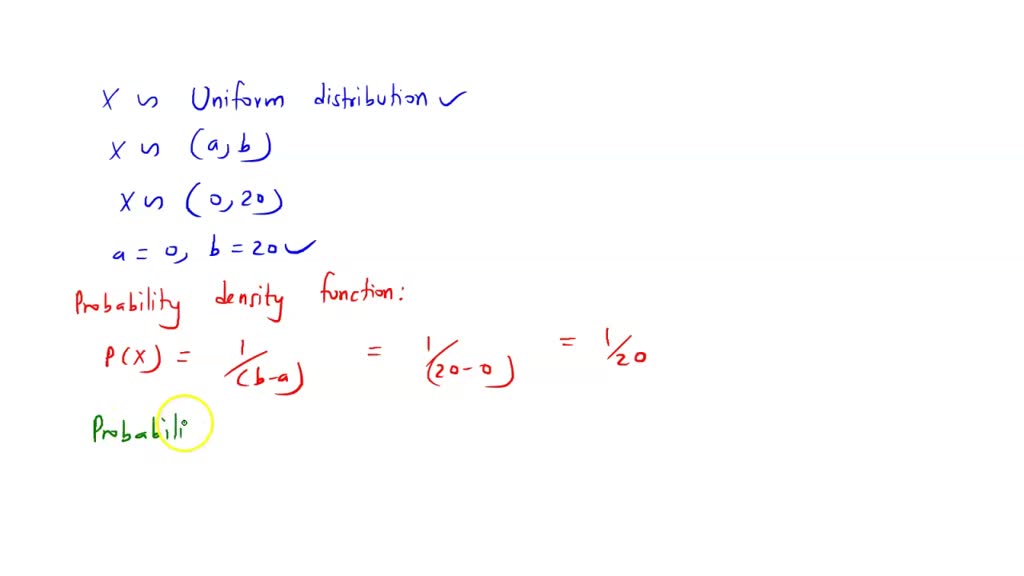 X ~ Uniform distribution ✓
X ~ (a, b)
X ~ (0, 20)
a = 0, b = 20 ✓
Probability density function:
P(X) = 1/(b-a) = 1/(20-0) = 1/20
Probabili